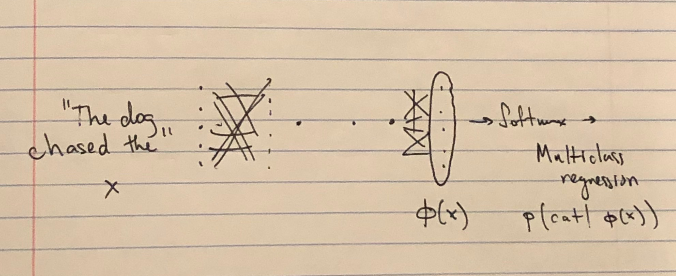 "The dog
chased the"
x
ϕ(x)
→ Softmax →
Multiclass
regression
p(cat| ϕ(x))